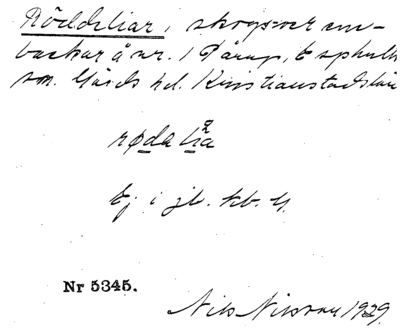 Röddeliar, skogsver en-
backar å nr. 1 Tårup, Esphults
sn. Gärds hd. Kristianstads län
rødalia
Ej i jb. kb. G.
Nr 5345.
Nils Nilsson 1929